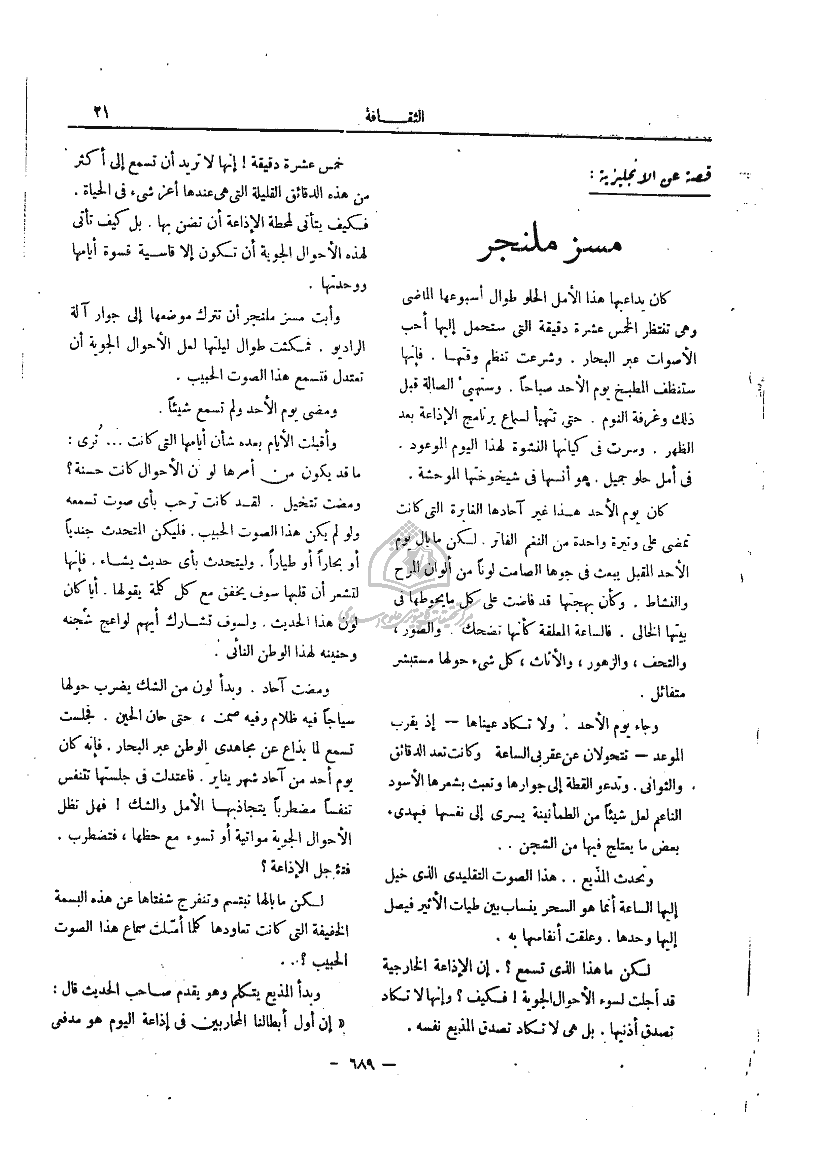 الثقـافة
٢١
قصة عن الانجليزية :
مسز ملنجر
كان يداعبها هذا الأمل الحلو طوال أسبوعها الماضى
وهى تنتظر الخمس عشرة دقيقة التى ستحمل إليها أحب
الأصوات عبر البحار . وشرعت تنظم وقتها . فإنها
ستنظف المطبخ يوم الأحد صباحاً . وستهيء الصالة قبل
ذلك وغرفة النوم . حتى تتهيأ لسماع برنامج الإذاعة بعد
الظهر . وسرت فى كيانها النشوة لهذا اليوم الموعود .
فى أمل حلو جميل . هو أنسها فى شيخوختها الموحشة .
كان يوم الأحد هذا غير آحادها الغابرة التى كانت
تمضى على وتيرة واحدة من النغم الفاتر . لكن ما بال يوم
الأحد المقبل يبعث فى جوها الصامت لوناً من ألوان المرح
والنشاط . وكأن بهجتها قد فاضت على كل ما يحوطها فى
بيتها الخالى . فالساعة المعلقة كأنها تضحك . والصور ،
والتحف ، والزهور ، والأثاث ، كل شىء حولها مستبشر
متفائل .
وجاء يوم الأحد . ولا تكاد عيناها — إذ يقرب
الموعد — تتحولان عن عقربى الساعة وكانت تعد الدقائق
والثوانى . وتدعو القطة إلى جوارها وتعبث بشعرها الأسود
الناعم لعل شيئاً من الطمأنينة يسرى إلى نفسها فيهدىء
بعض ما يعتلج فيها من الشجن . .
وتحدث المذيع . . هذا الصوت التقليدى الذى خيل
إليها الساعة أنما هو السحر ينساب بين طيات الأثير فيصل
إليها وحدها . وعلقت أنفاسها به .
لكن ما هذا الذى تسمع ؟ . إن الإذاعة الخارجية
قد أجلت لسوء الأحوال الجوية ! فكيف ؟ وإنها لا تكاد
تصدق أذنيها . بل هى لا تكاد تصدق المذيع نفسه .
خمس عشرة دقيقة ! إنها لا تريد أن تسمع إلى أكثر
من هذه الدقائق القليلة التى هى عندها أعز شىء فى الحياة .
فكيف يتأتى لمحطة الإذاعة أن تضن بها . بل كيف تأتى
لهذه الأحوال الجوية أن تكون إلا قاسية قسوة أيامها
ووحدتها .
وأبت مسز ملنجر أن تترك موضعها إلى جوار آلة
الراديو . فمكثت طوال ليلتها لعل الأحوال الجوية أن
تعتدل فتسمع هذا الصوت الحبيب .
ومضى يوم الأحد ولم تسمع شيئاً .
وأقبلت الأيام بعده شأن أيامها التى كانت ... تُرى :
ما قد يكون من أمرها لو أن الأحوال كانت حسنة ؟
ومضت تتخيل . لقد كانت ترحب بأى صوت تسمعه
ولو لم يكن هذا الصوت الحبيب . فليكن المتحدث جندياً
أو بحاراً أو طياراً . وليتحدث بأى حديث يشاء . فإنها
لتشعر أن قلبها سوف يخفق مع كل كلمة يقولها . أيا كان
لون هذا الحديث . ولسوف تشارك أيهم لواعج شجنه
وحنينه لهذا الوطن النائى .
ومضت آحاد . وبدأ لون من الشك يضرب حولها
سياجاً فيه ظلام وفيه صمت ، حتى حان الحين . فجلست
تسمع لما يذاع عن مجاهدى الوطن عبر البحار . فإنه كان
يوم أحد من آحاد شهر يناير . فاعتدلت فى جلستها تتنفس
تنفساً مضطرباً يتجاذبها الأمل والشك ! فهل تظل
الأحوال الجوية مواتية أو تسوء مع حظها ، فتضطرب .
فتؤجل الإذاعة ؟
لكن ما بالها تبتسم وتنفرج شفتاها عن هذه البسمة
الخفيفة التى كانت تعاودها كلما أمّلت سماع هذا الصوت
الحبيب ؟ . .
وبدأ المذيع يتكلم وهو يقدم صاحب الحديث قال :
« إن أول أبطالنا المحاربين فى إذاعة اليوم هو مدفى
— ٦٨٩ —